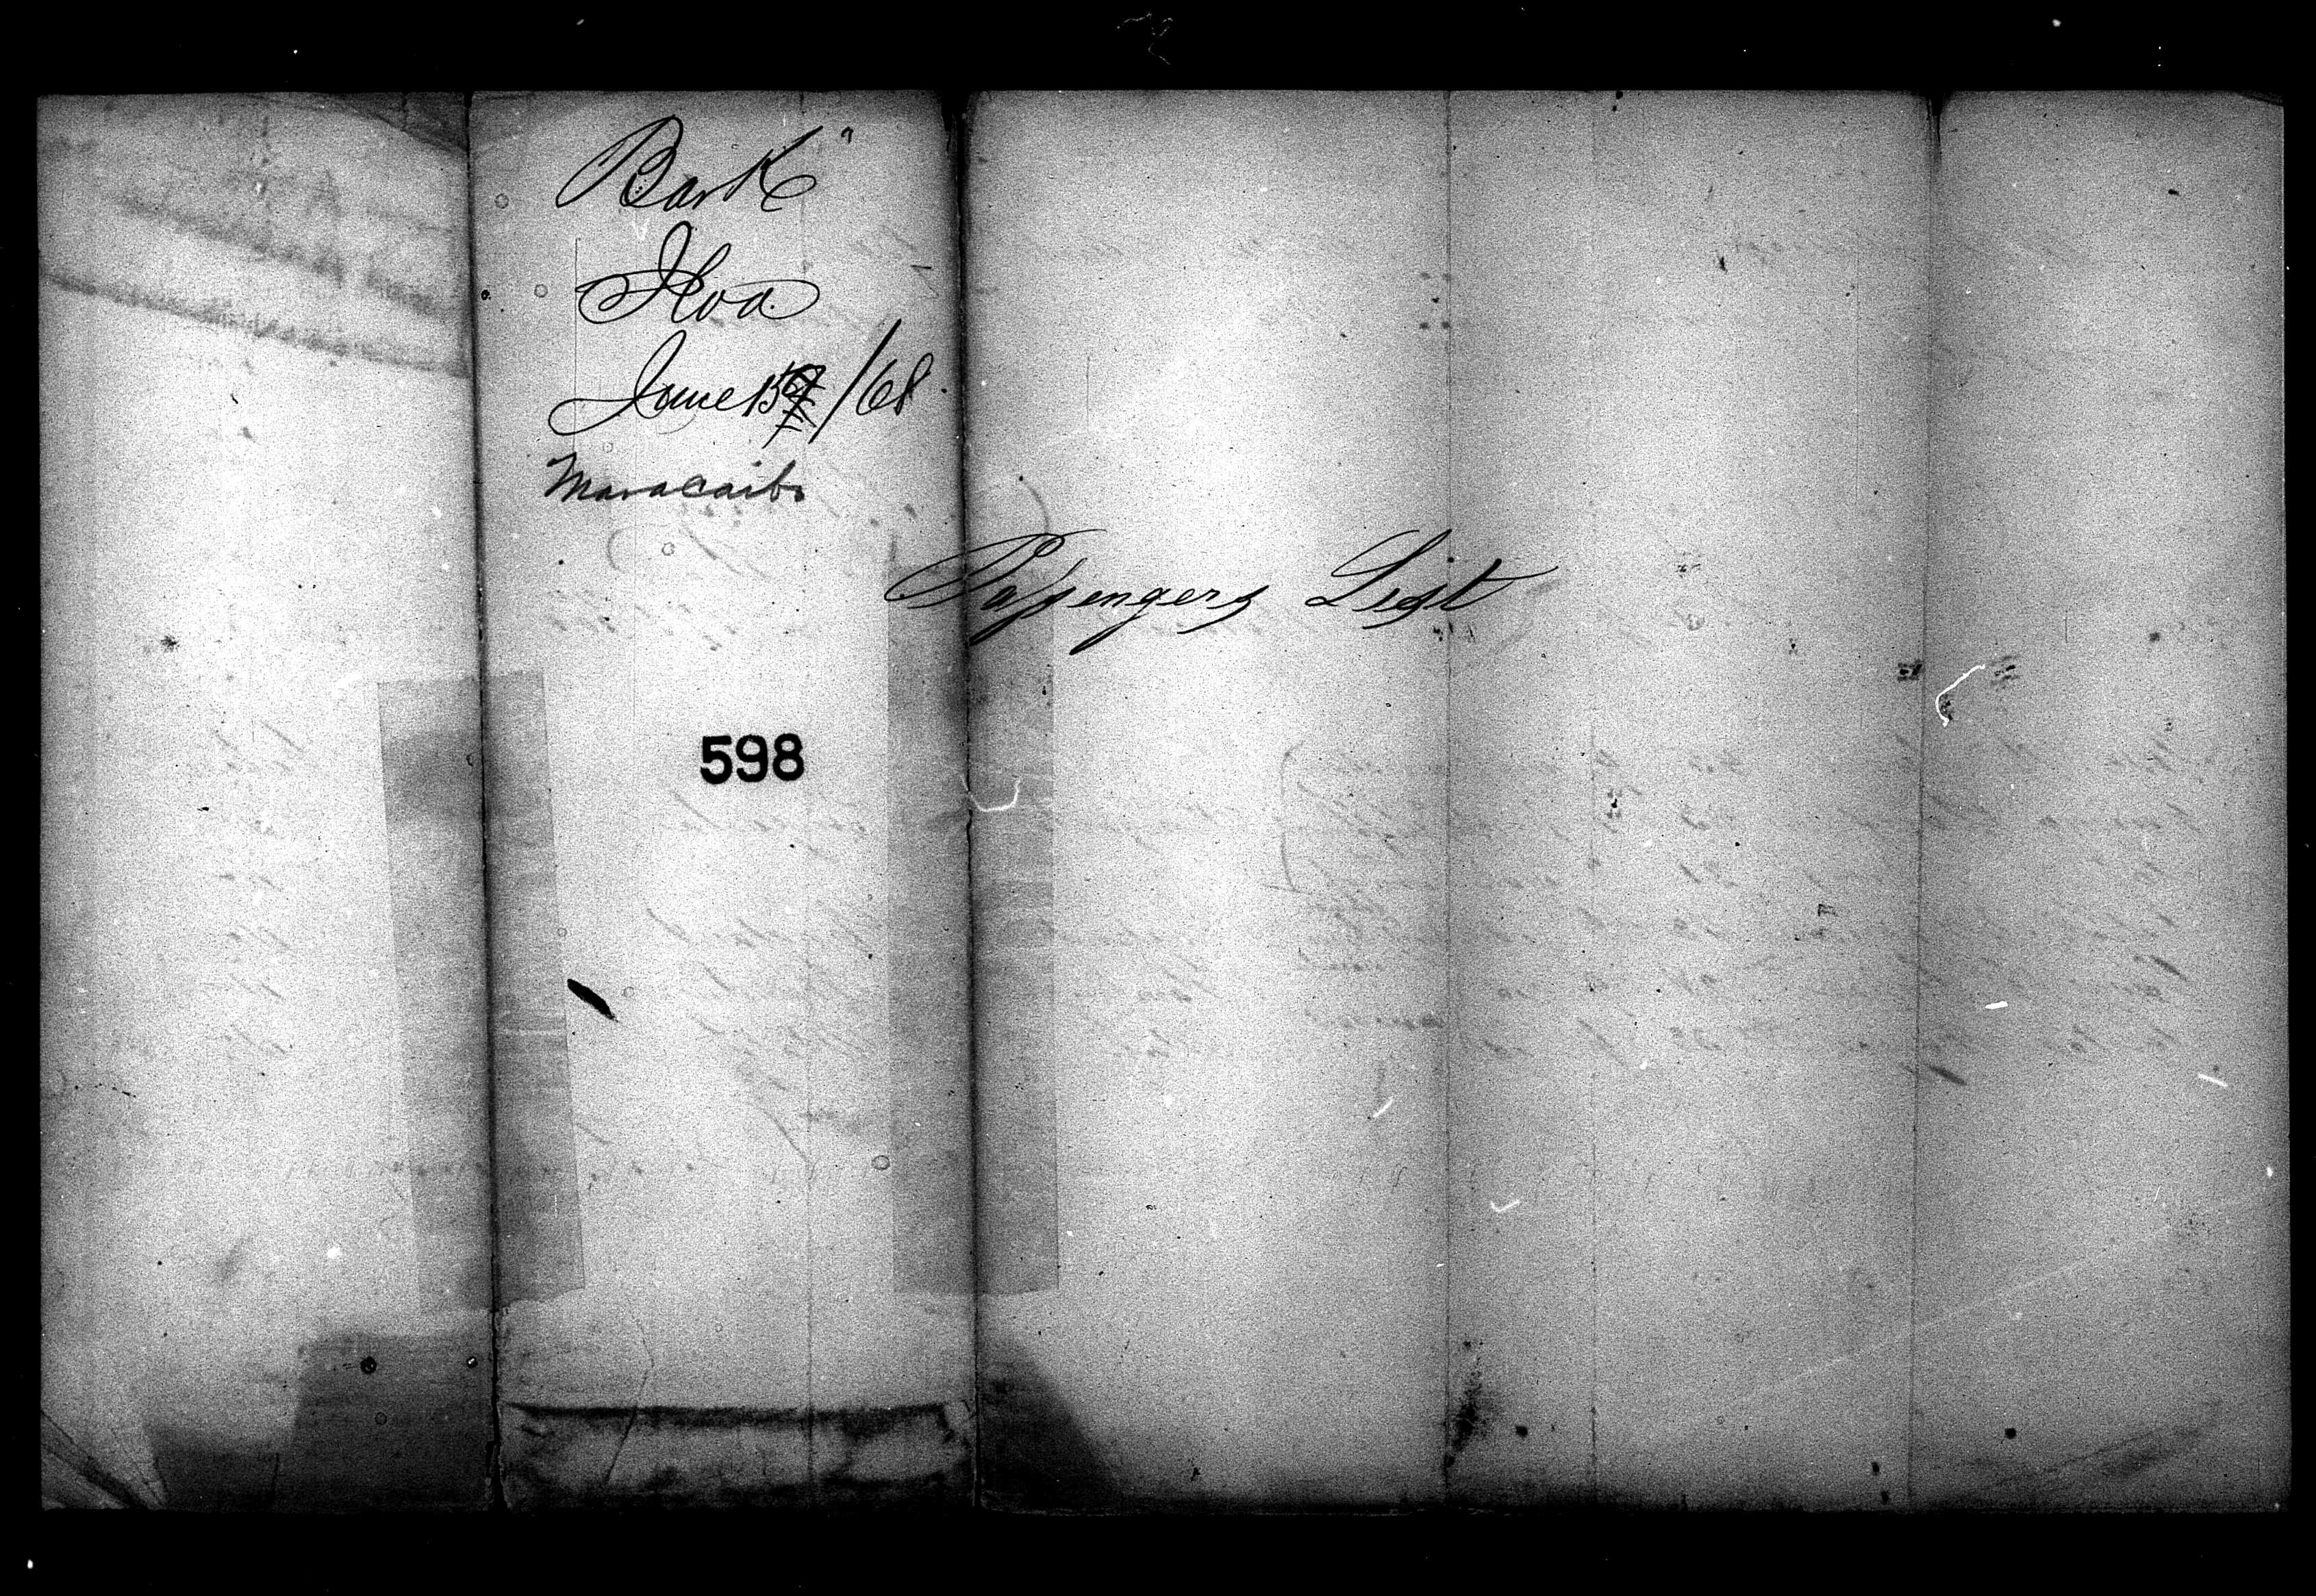 Bark "
Iloa
June 15 /68
Maracaibo
Passengers List
598